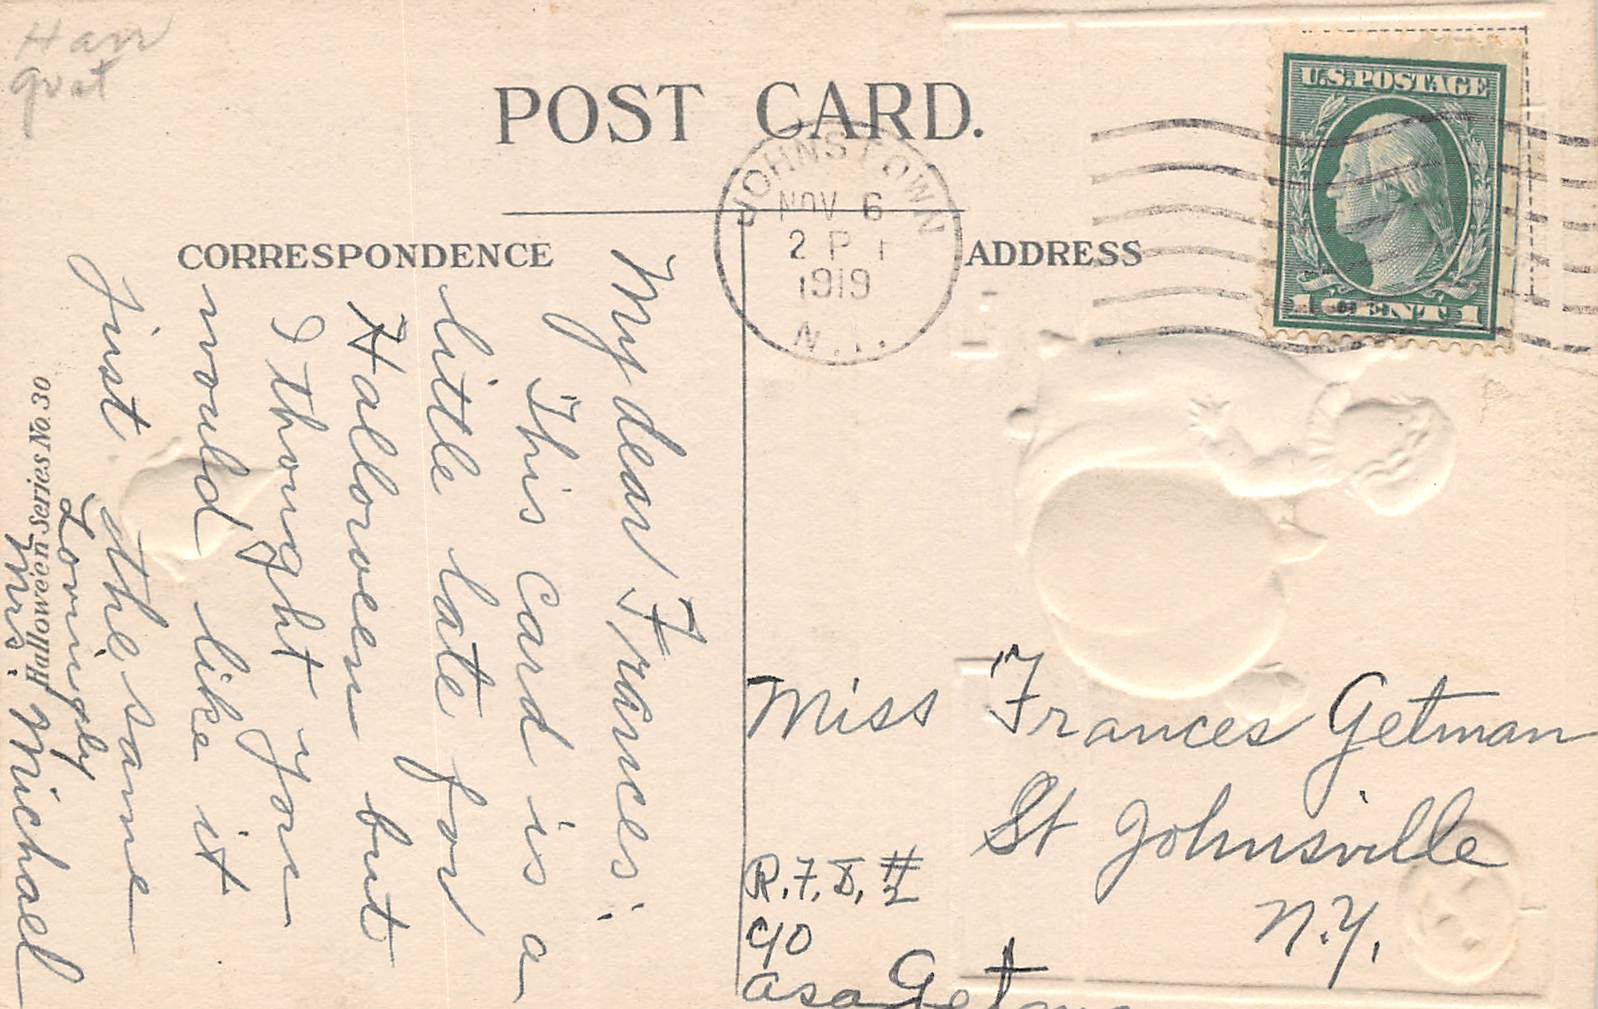 Harr
gvat
POST CARD.
U.S.POSTAGE
1 CENT 1
JOHNSTOWN
NOV 6
2 P
1919
N.Y.
CORRESPONDENCE
ADDRESS
My dear Frances:
This card is a
little late for
Halloween but
I thought you
would like it
just the same
Lovingly
Mrs. Michael
Halloween Series No. 30
Miss Frances Getman
St Johnsville
N.Y.
R.F.D. #2
c/o
Asa Getman